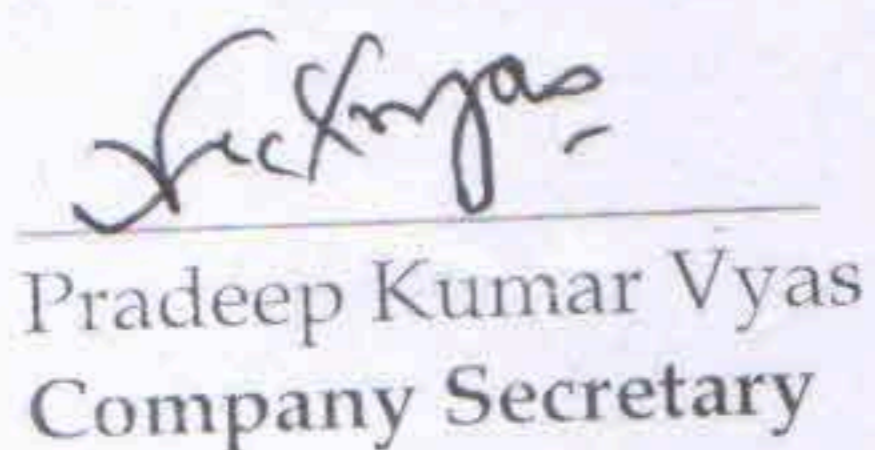 Pradeep Kumar Vyas
Company Secretary